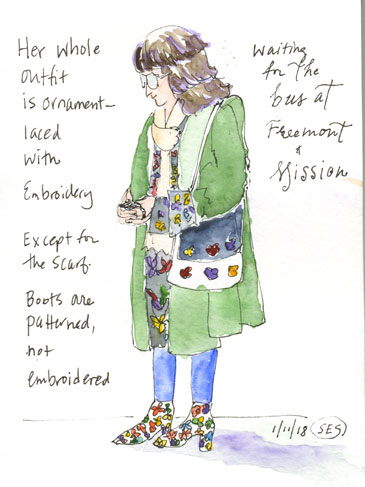 Her whole
outfit
is ornament-
laced
with
Embroidery
Except for
the scarf.
Boots are
patterned,
not
embroidered
Waiting
for The
bus at
Freemont
&
Mission
1/11/18 SES